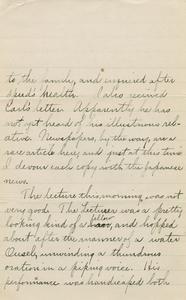 to the family, and inquired after
dad's health. I also received
Earl's letter. Apparently he has
not yet heard of his illustrious rel-
ative. Newspapers, by the way, are a
rare article here, and just at this time
I devour each copy with the Japanese
news.
The lecture this morning was not
very good. The lecturer was a pretty
looking kind of a fellow, and hopped
about after the manner of a water
Ousel, unwinding a thundrous
oration in a piping voice. His
performance was handicaped both